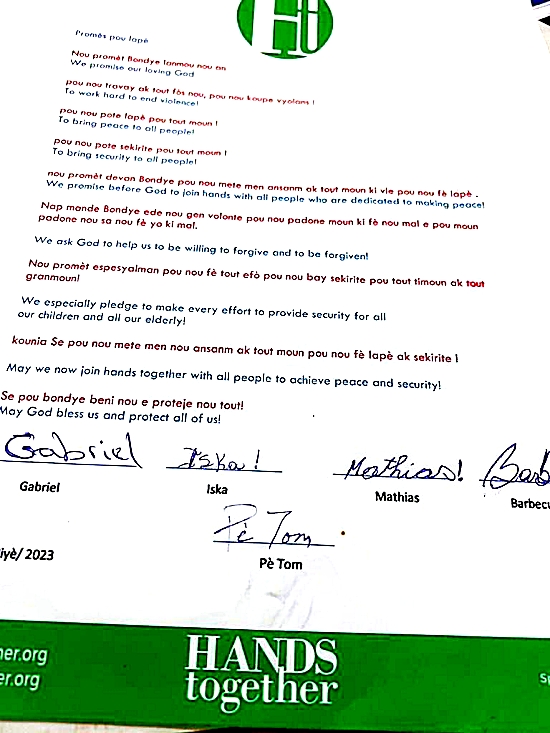 Ht
Promès pou lapè
Nou promèt Bondye lanmou nou an
We promise our loving God
pou nou travay ak tout fòs nou, pou nou koupe vyolans !
To work hard to end violence!
pou nou pote lapè pou tout moun !
To bring peace to all people!
pou nou pote sekirite pou tout moun !
To bring security to all people!
nou promèt devan Bondye pou nou mete men ansanm ak tout moun ki vle pou nou fè lapè .
We promise before God to join hands with all people who are dedicated to making peace!
Nap mande Bondye ede nou gen volonte pou nou padone moun ki fè nou mal e pou moun
padone nou sa nou fè yo ki mal.
We ask God to help us to be willing to forgive and to be forgiven!
Nou promèt espesyalman pou nou fè tout efò pou nou bay sekirite pou tout timoun ak tout
granmoun!
We especially pledge to make every effort to provide security for all
our children and all our elderly!
kounia Se pou nou mete men nou ansanm ak tout moun pou nou fè lapè ak sekirite !
May we now join hands together with all people to achieve peace and security!
Se pou bondye beni nou e proteje nou tout!
May God bless us and protect all of us!
Gabriel Iska! Mathias! Barb
Gabriel Iska Mathias Barbecu
Pè Tom
Pè Tom
iyè/ 2023
her.org
er.org
HANDS
together